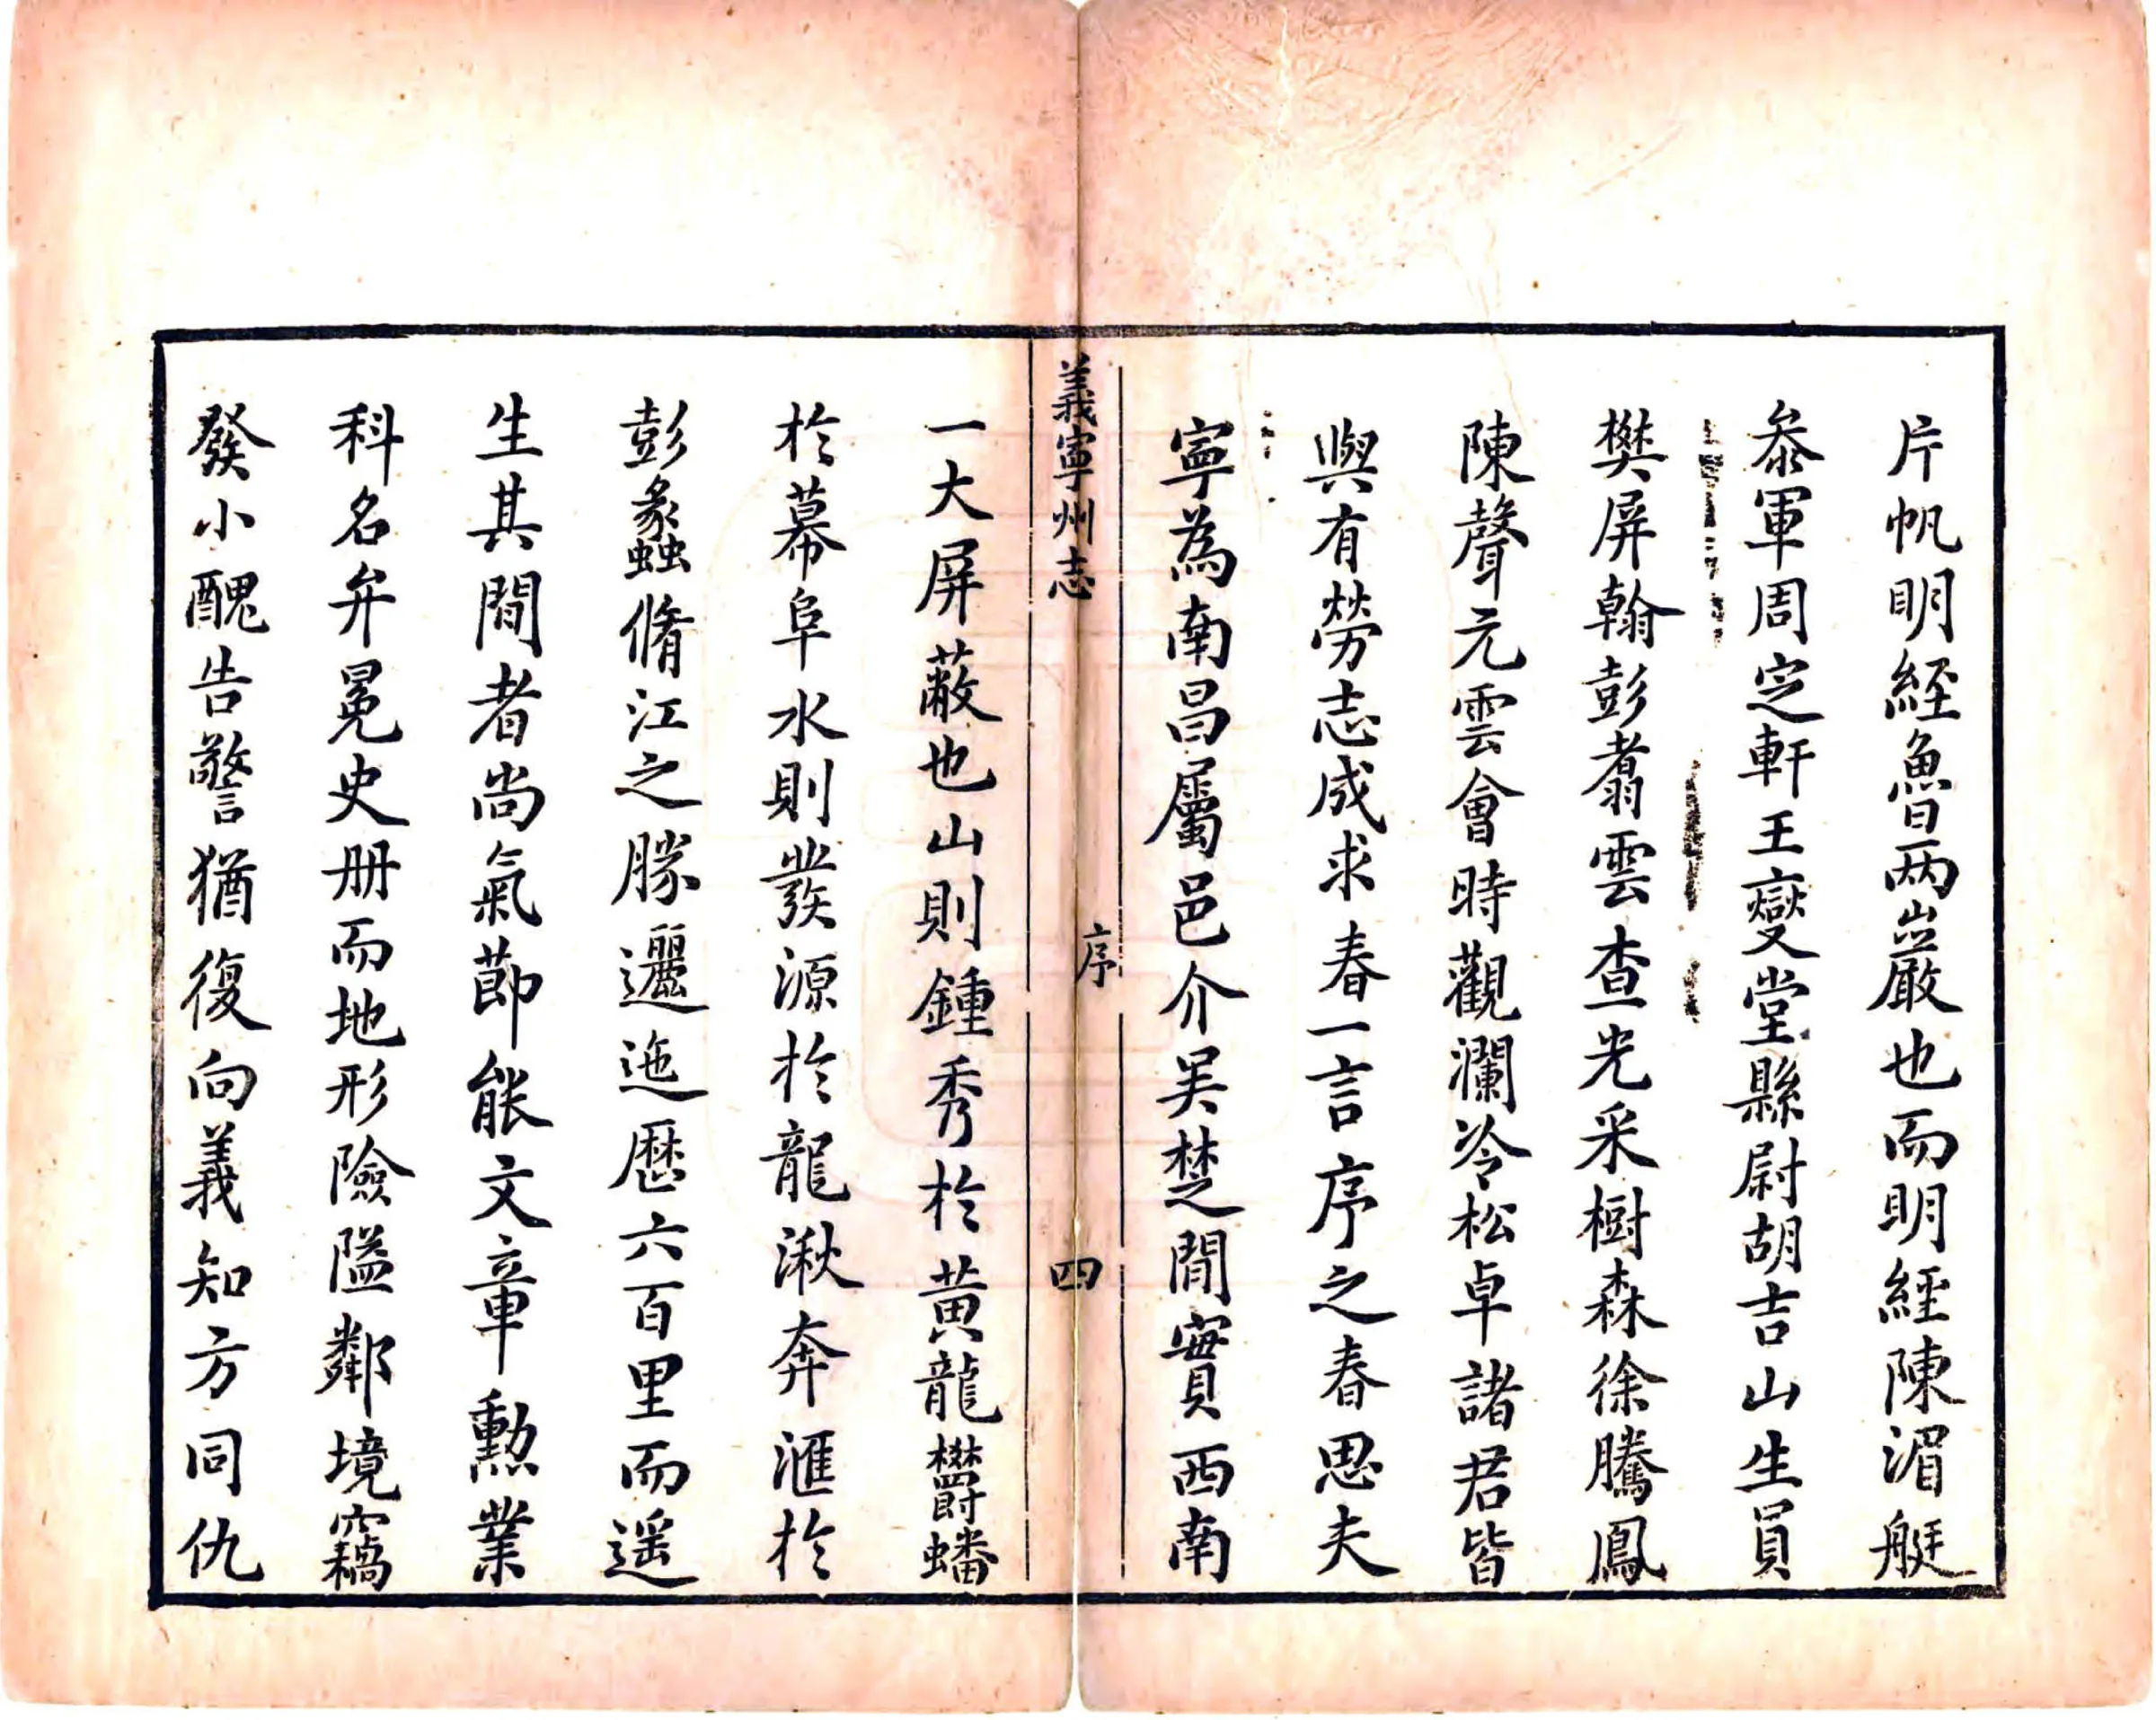 片帆明經魯兩巖也而明經陳湄艇
叅軍周定軒王燮堂縣尉胡吉山生員
樊屏翰彭翥雲查光采樹森徐騰鳳
陳聲元雲會時觀瀾冷松卓諸君皆
與有勞志成求春一言序之春思夫
寧為南昌屬邑介吴楚間實西南
義寧州志
序
四
一大屏蔽也山則鍾秀於黄龍欝蟠
於幕阜水則發源於龍湫奔滙於
彭蠡脩江之勝邐迤歷六百里而遥
生其間者尚氣節能文章勳業
科名弁冕史册而地形險隘鄰境竊
發小醜告警猶復向義知方同仇